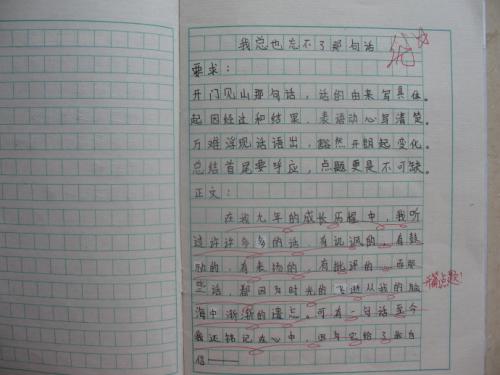 我总也忘不了那句话
优
要求：
开门见山那句话，话的由来写具体。
起因经过和结果，表语动心写清楚。
万难浮现话语出，豁然开朗起变化。
总结首尾要呼应，点题更是不可缺。
正文：
在我九年的成长历程中，我听
过许许多多的话，有讽刺的，有鼓
励的，有表扬的，有批评的……
些话，都因为时光的飞逝从我的脑
开篇点题！
海中渐渐的遗忘。可有一句话至今
我还铭记在心中，因为它给了我自
信——